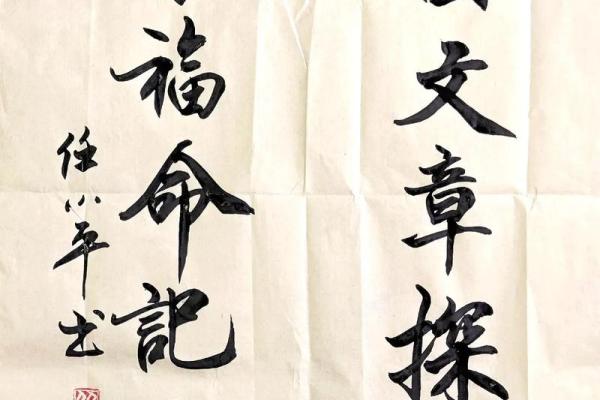 文章探
福命記
任小平书